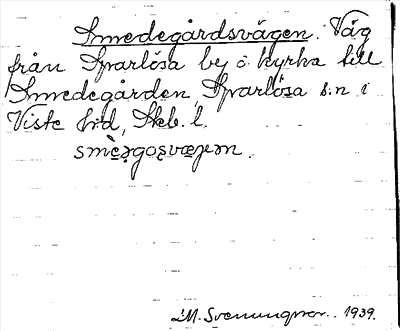 Smedegårdsvägen. Väg
från Sparlösa by o. kyrka till
Smedegården, Sparlösa s:n i
Viste hd, Skb. l.
M. Svenungsson. 1939.